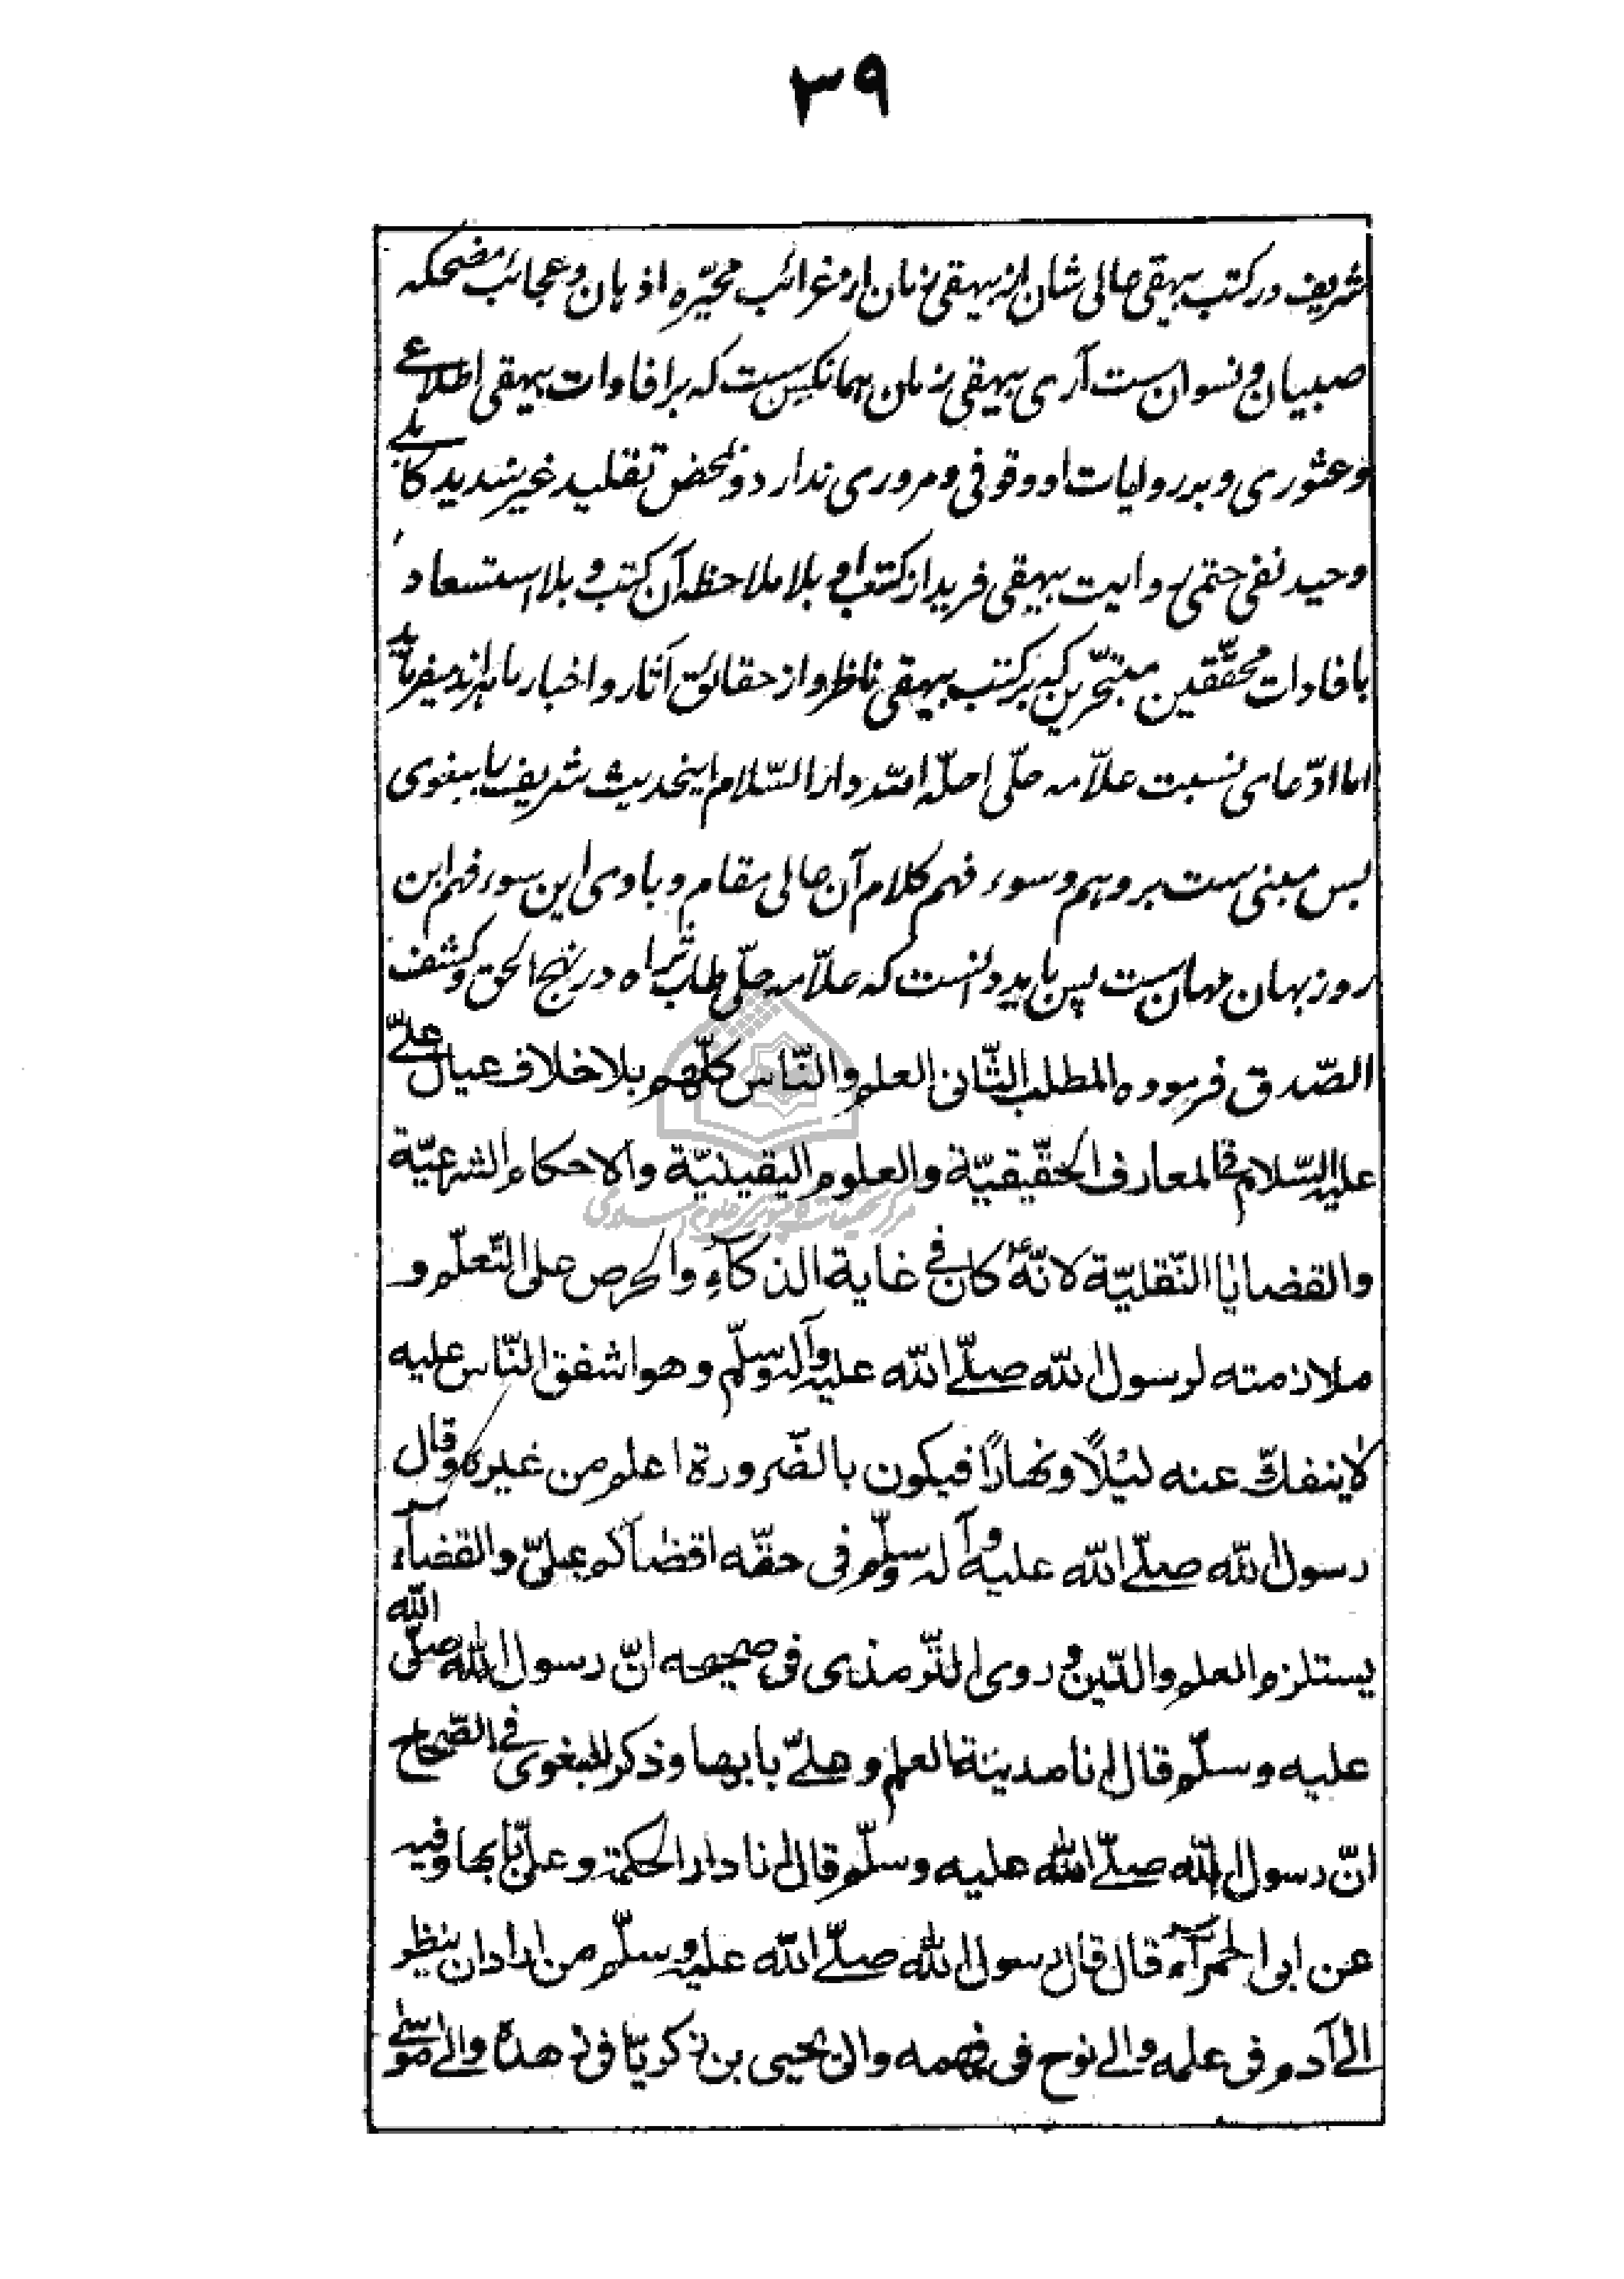 ٣٩
شریف در کتب بیهقی عالی شان از بیهقی زمان از غرائب محیّره اذهان و عجائب مضحکه
صبیان و نسوان ست آری بیهقی زمان همانکس ست که بر افادات بیهقی اطلاعی
و عثوری و بر روایات او وقوفی و مروری ندارد و بمحض تقلید غیر سدید کابلی
وحید نفی حتمی روایت بیهقی فرید از کتب او بلا ملاحظه آن کتب و بلا استسعاد
بافادات محققین متبحّرین که بر کتب بیهقی ناظر و از حقائق آثار و اخبار ماهراند میفرماید
اما ادّعای نسبت علاّمه حلّی احلّه الله دار السّلام اینحدیث شریف را ببغوی
پس مبنی ست بر وهم و سوء فهم کلام آن عالی مقام و بادی این سوء فهم ابن
روزبهان مهان ست پس باید دانست که علاّمه حلّی طاب ثراه در نهج الحق و کشف
الصّدق فرموده المطلب الثّانی العلم و النّاس کلّهم بلا خلاف عیال علیّ
علیه السّلام فی المعارف الحقیقیّة والعلوم الیقینیّة والاحکام الشرعیّة
والقضایا النّقلیّة لانّه ع کان فی غایة الذکآءِ والحرص علی التّعلّم و
ملازمته لرسول الله صلّی الله علیه وآله وسلّم وهو اشفق النّاس علیه
لا ینفکّ عنه لیلًا ونهارًا فیکون بالضّرورة اعلم من غیره وقال
رسول الله صلّی الله علیه وآله وسلّم فی حقّه اقضاکم علیّ والقضآء
یستلزم العلم والدّین وروی التّرمذی فی صحیحه انّ رسول الله صلّی الله
علیه وسلّم قال انا مدینة العلم وعلیّ بابها وذکر البغوی فی الصّحاح
انّ رسول الله صلّی الله علیه وسلّم قال انا دار الحکمة وعلیّ بابها وفیه
عن ابی الحمرآء قال قال رسول الله صلّی الله علیه وسلّم من اراد ان ینظر
الی آدم فی علمه والی نوح فی فهمه والی یحیی بن زکریّا فی زهده والی موسی
مرکز تحقیقات کامپیوتری علوم اسلامی